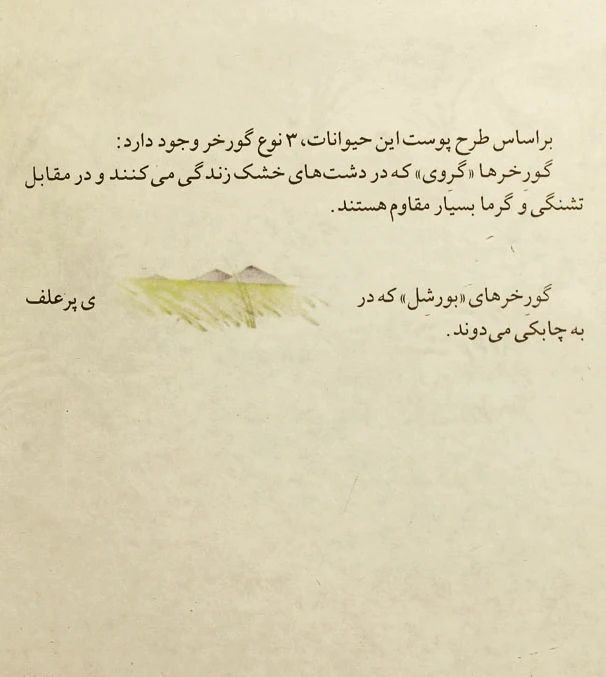 براساس طرح پوست این حیوانات، ۳ نوع گورخر وجود دارد:
گورخرها «گروی» که در دشت‌های خشک زندگی می‌کنند و در مقابل
تشنگی و گرما بسیار مقاوم هستند.
گورخرهای «بورشل» که در ی پرعلف
به چابکی می‌دوند.